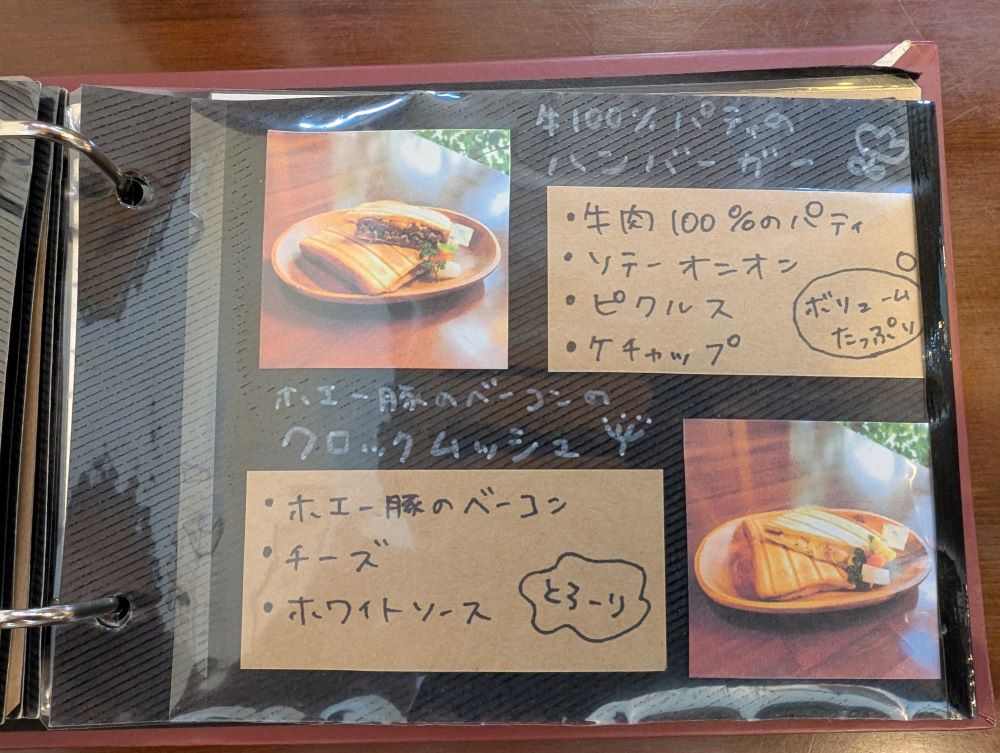 牛100%パティの
ハンバーガー
・牛肉100%のパティ
・ソテーオニオン
・ピクルス
・ケチャップ
ボリューム
たっぷり
ホエー豚のベーコンの
クロックムッシュ
・ホエー豚のベーコン
・チーズ
・ホワイトソース
とろーり